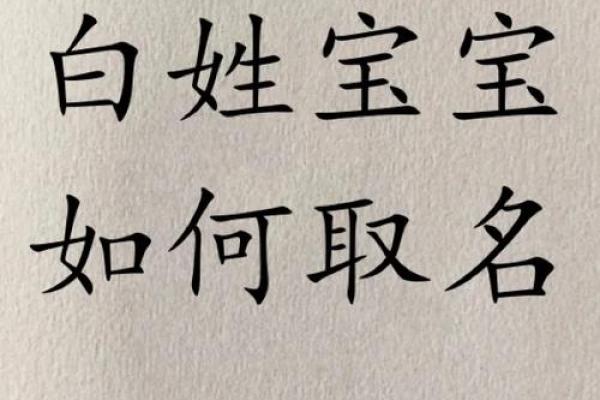 白姓宝宝
如何取名